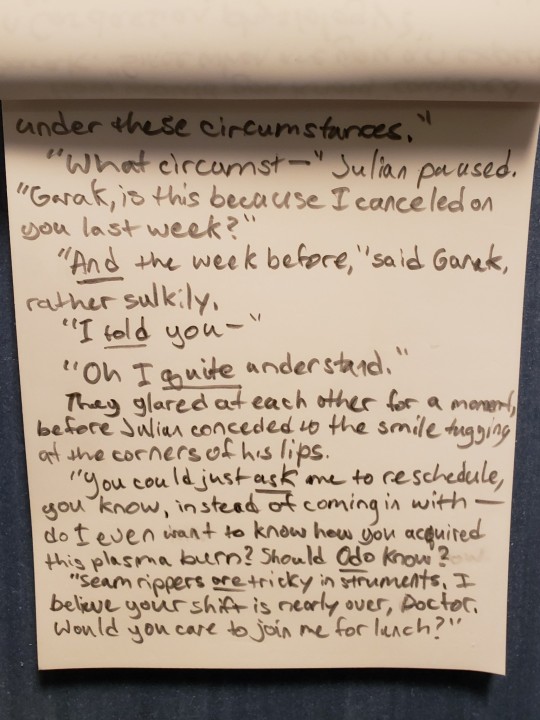 under these circumstances."
"What circumst—" Julian paused.
"Garak, is this because I canceled on
you last week?"
"And the week before," said Garak,
rather sulkily.
"I told you—"
"Oh I quite understand."
They glared at each other for a moment,
before Julian conceded to the smile tugging
at the corners of his lips.
"You could just ask me to reschedule,
you know, instead of coming in with —
do I even want to know how you acquired
this plasma burn? Should Odo know?
"Seam rippers are tricky instruments. I
believe your shift is nearly over, Doctor.
Would you care to join me for lunch?"